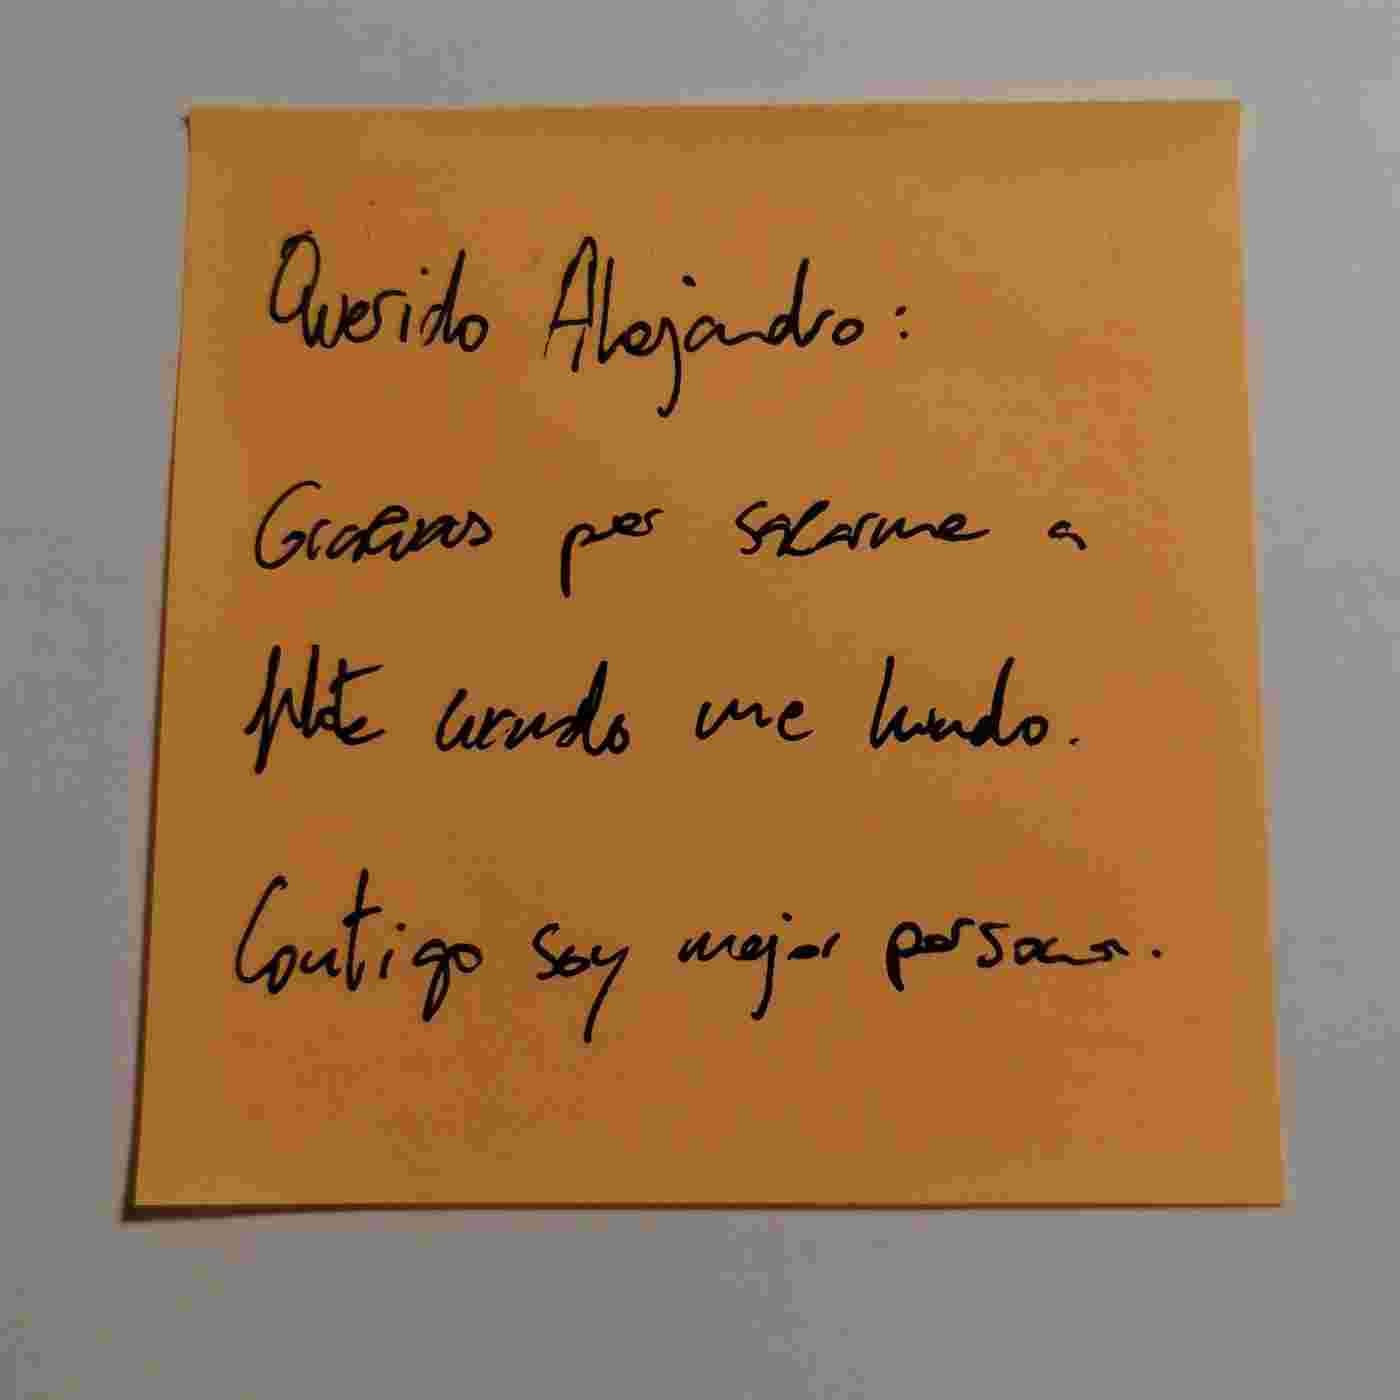 Querido Alejandro:
Gracias por sacarme a
flote cuando me hundo.
Contigo soy mejor persona.